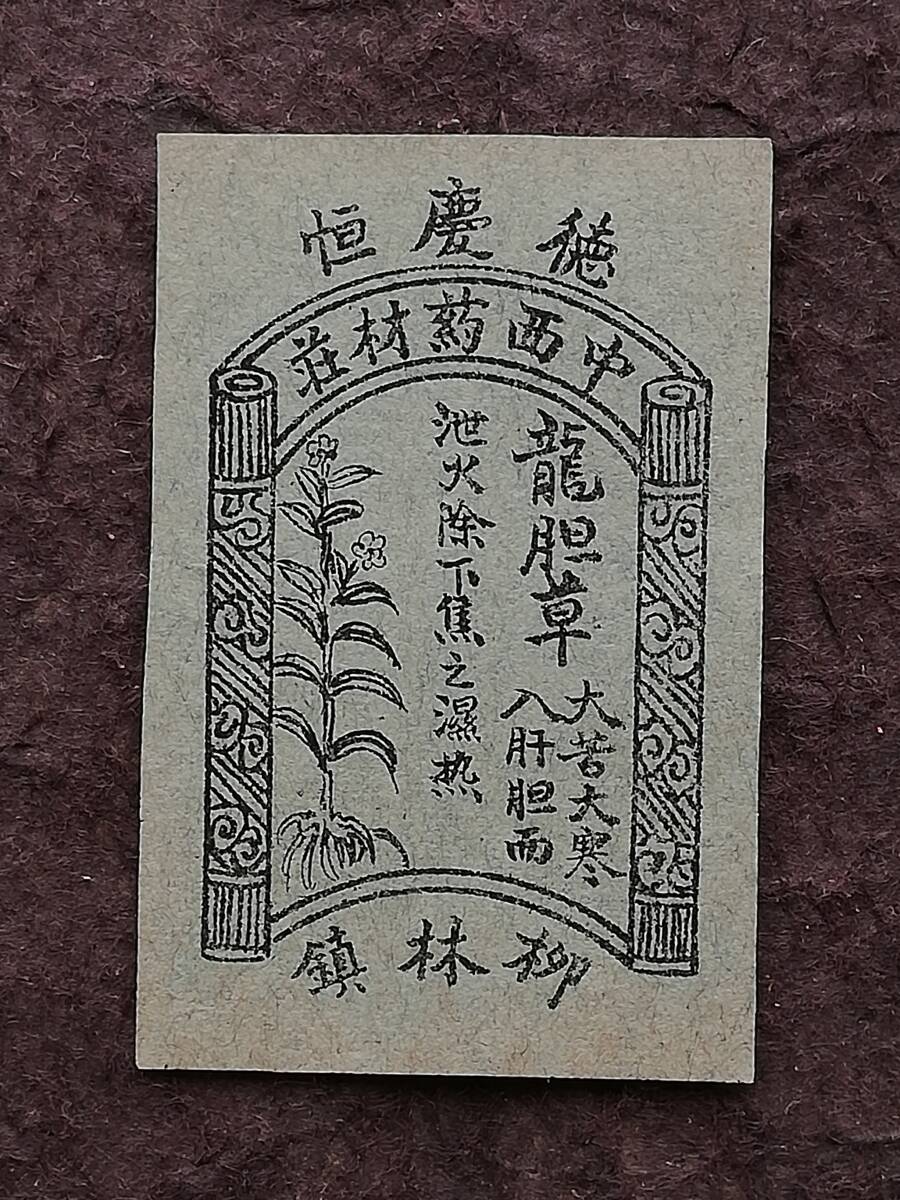 德慶恒
中西药材莊
龍胆草
大苦大寒
入肝胆而
泄火除下焦之濕热
柳林鎮